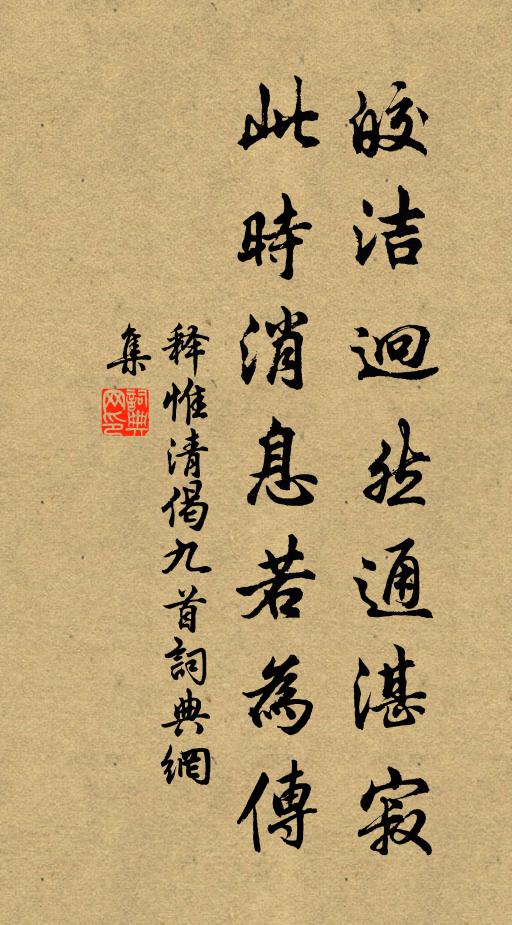 皎洁迥然通湛寂
此時消息若為傳
释惟清偈九首詞典網
集
詞典
网印